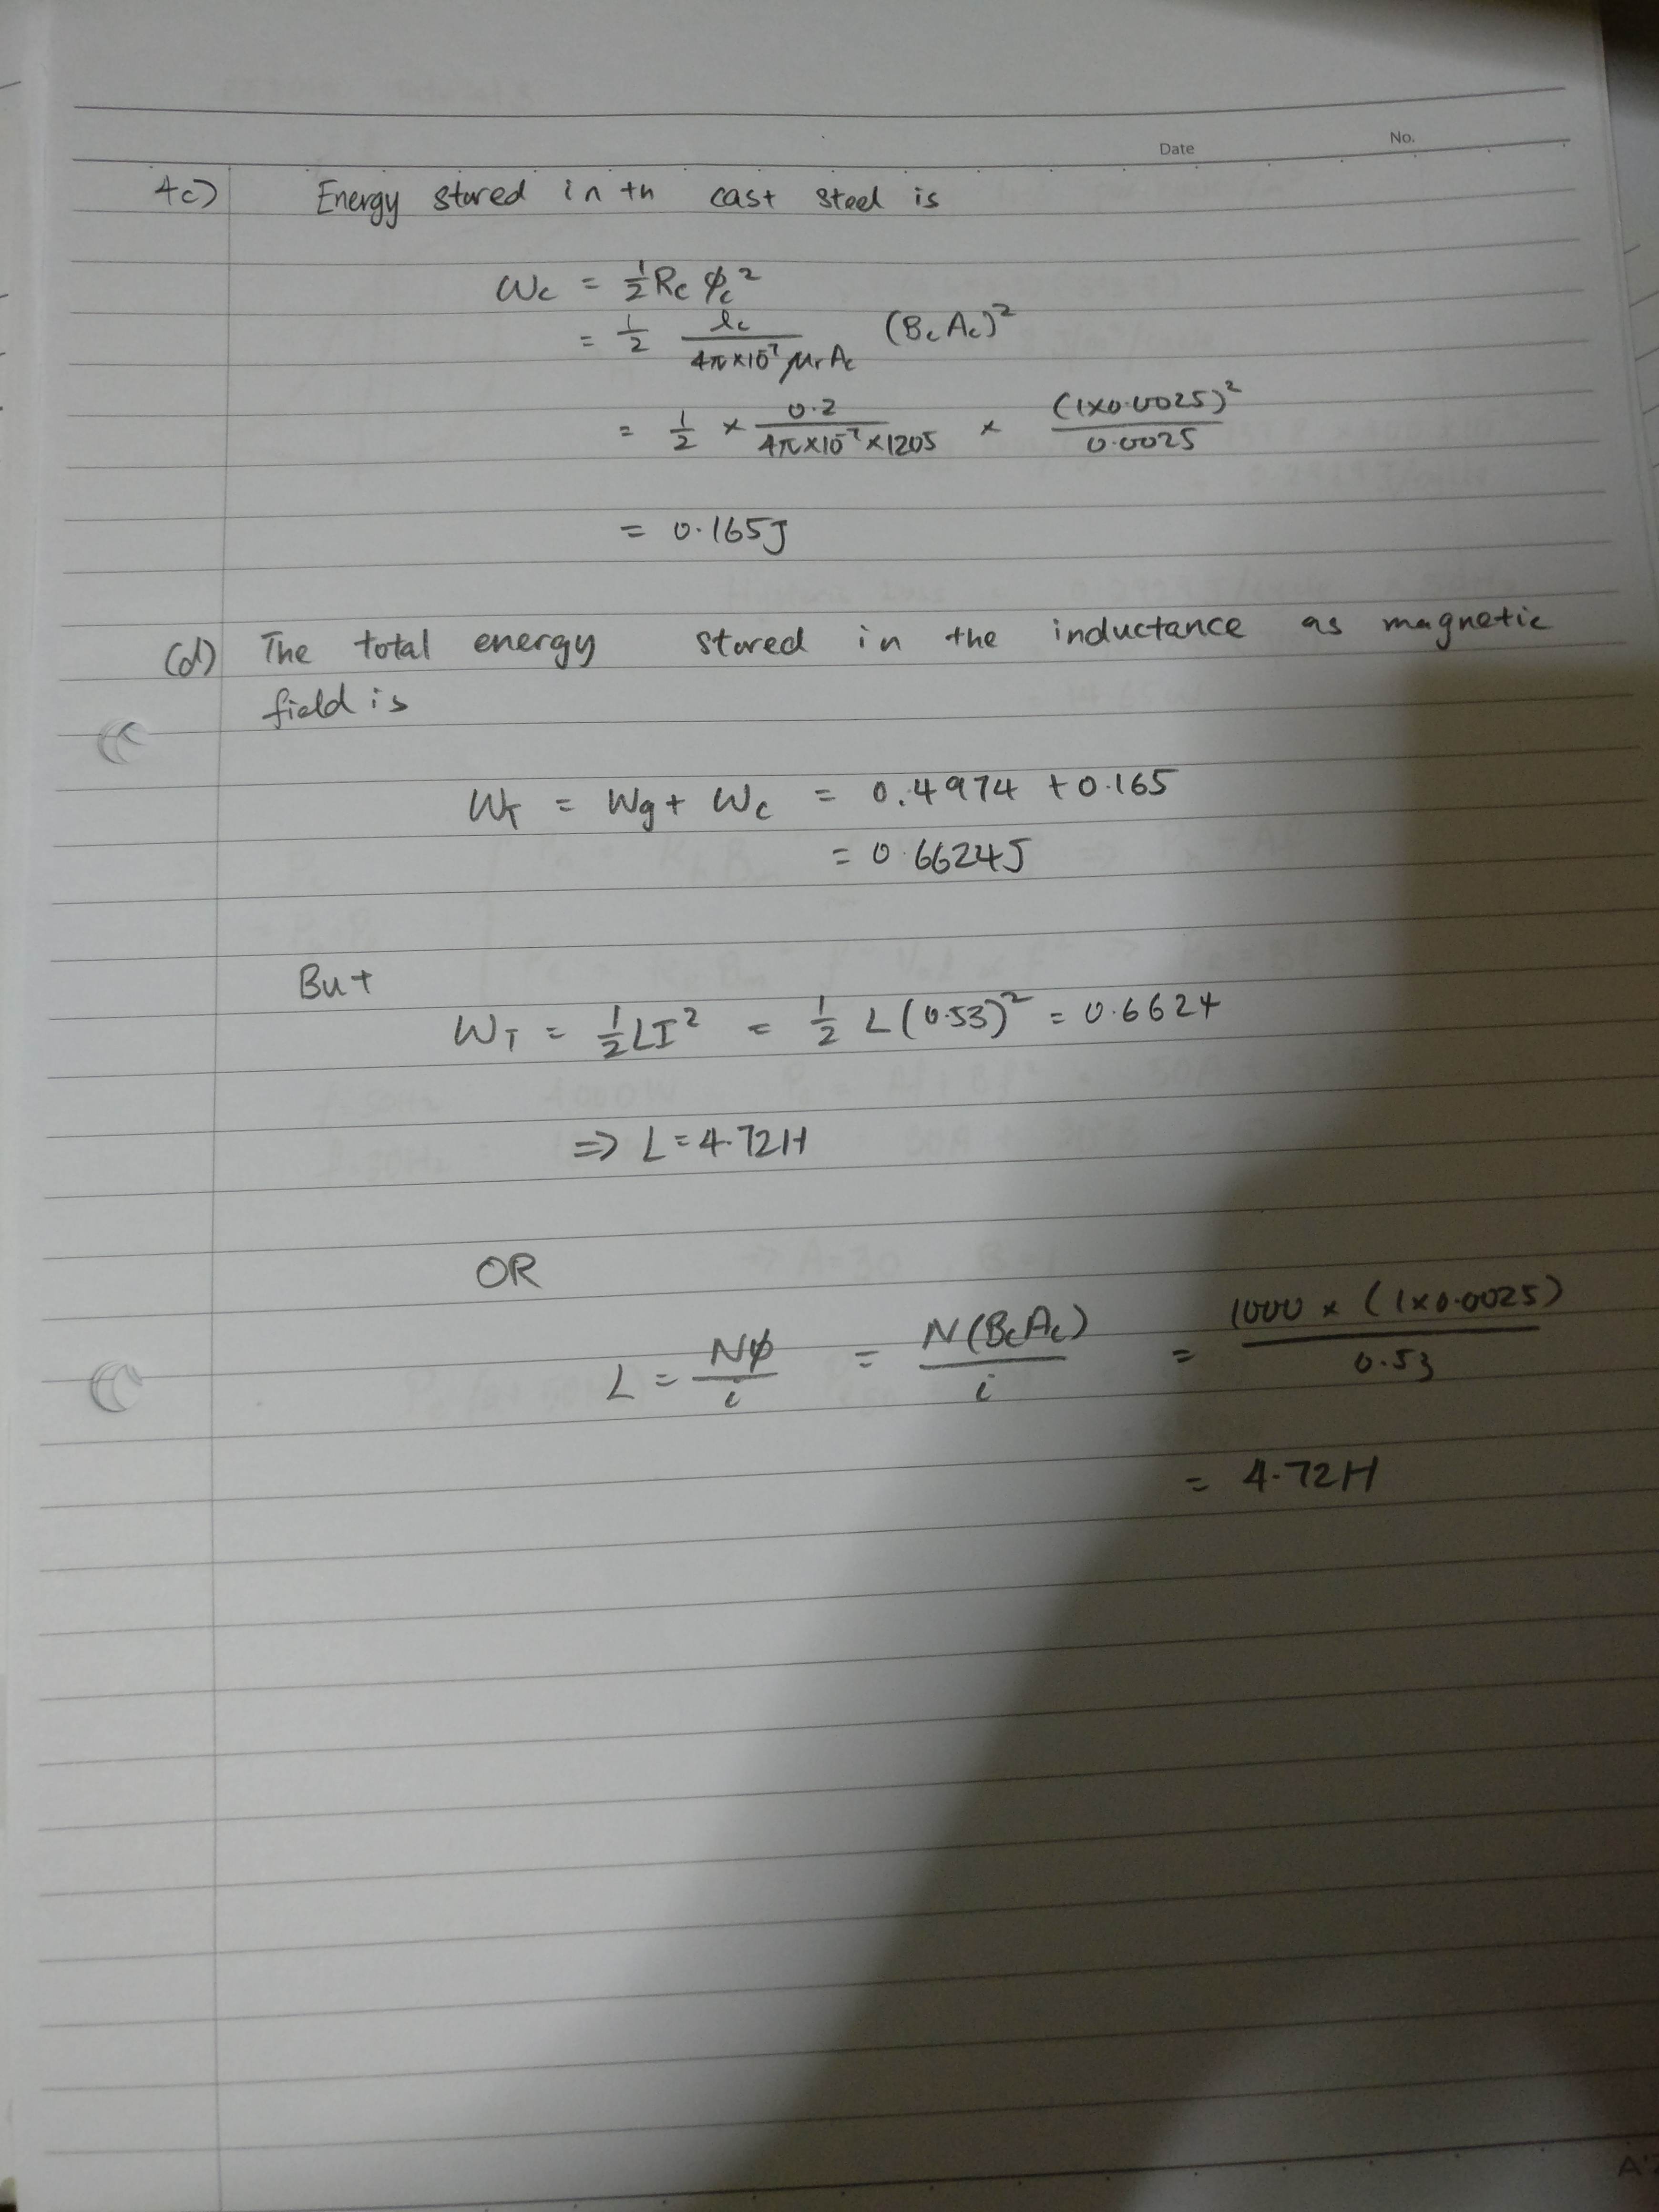 Date No.
4c) Energy stored in th cast steel is
Wc = 1/2 Rc ϕc²
= 1/2 lc/(4π×10⁻⁷ μr Ac) (Bc Ac)²
= 1/2 × 0.2/(4π×10⁻⁷×1205) × (1×0.0025)²/0.0025
= 0.165J
(d) The total energy stored in the inductance as magnetic
field is
WT = Wg + Wc = 0.4974 + 0.165
= 0.6624J
But
WT = 1/2 LI² = 1/2 L(0.53)² = 0.6624
⇒ L = 4.72H
OR
L = Nϕ/i = N(BcAc)/i = 1000 × (1×0.0025)/0.53
= 4.72H